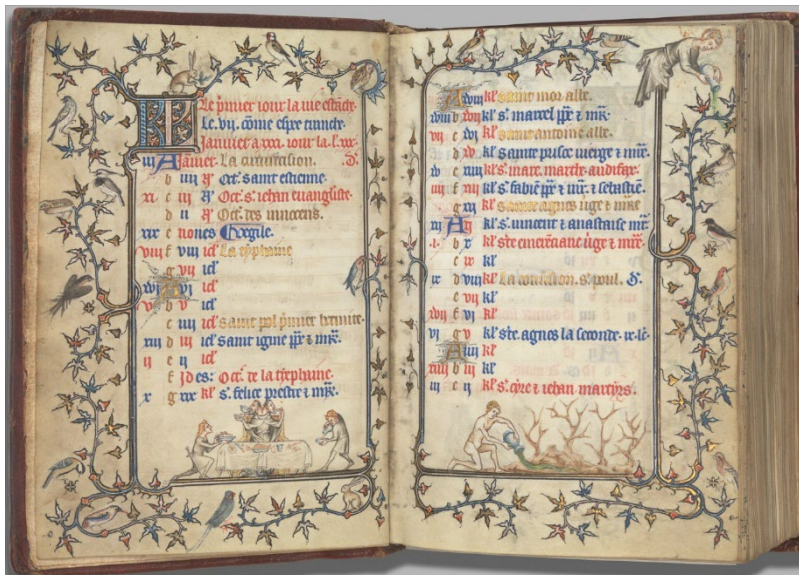 KL Le pmier iour la uie estaide
Le .vij. come espee tranche
Januier a xxxi. iour la l. xxx
iij A Januier. La circuncision. D.
b iiij N Oct. saint estienne.
xi c iij N Oct. s. iehan euangliste.
d ij N Oct. des innocens.
xix e nones Uegile.
viij f viij id La typhaine
g vij id
xvi A vi id
v b v id
c iiij id saint pol pmier hermite.
xiij d iij id saint igine ppe & mr.
ij e ij id
f ides: Oct. de la typhaine.
x g xix kl s. felice prestre & mr.
A xviij kl saint mor abbe.
xviij b xvij kl s. marcel ppe & mr.
vij c xvi kl saint antoine abbe.
d xv kl sainte prisce uierge & mre.
xv e xiiij kl s. marc. marthe audifax.
iiij f xiij kl s. fabie ppe & mr. & sebastie.
g xij kl sainte agnes uge & mre
xij A xi kl s. uincent & anastaise mr.
.i. b x kl ste emerciane uge & mre.
c ix kl
ix d viij kl La conuersion. s. poul. D.
e vij kl
xvij f vi kl
vi g v kl ste. agnes la seconde.
A iiij kl
xiiij b iij kl
iij c ij kl s. cyre & iehan martirs.